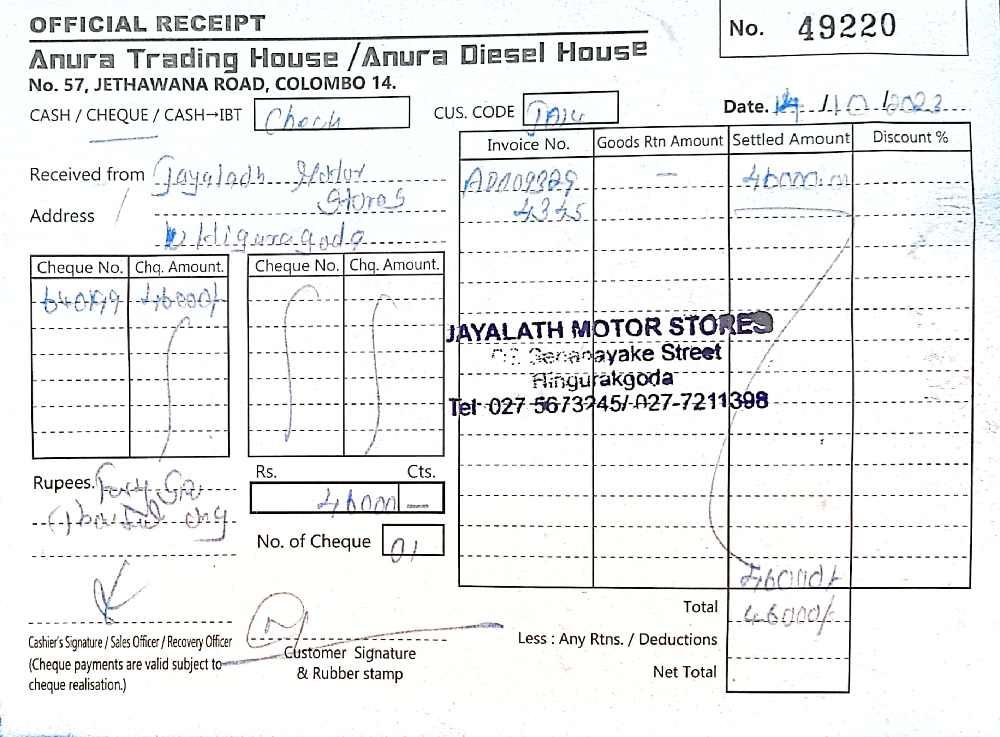 OFFICIAL RECEIPT
No. 49220
Anura Trading House /Anura Diesel House
No. 57, JETHAWANA ROAD, COLOMBO 14.
CASH / CHEQUE / CASH→IBT
CUS. CODE
Date. /10/2023
Invoice No. Goods Rtn Amount Settled Amount Discount %
Received from Jayaladh Motor
Stores
Address
4345
Cheque No. Chq. Amount. Cheque No. Chq. Amount.
46000/-
JAYALATH MOTOR STORES
Senanayake Street
Hingurakgoda
Tel 027 5673245/ 027-7211398
Rupees.
Rs. Cts.
46000 —
No. of Cheque 01
46000/-
Total 46000/-
Cashier's Signature / Sales Officer / Recovery Officer
Less : Any Rtns. / Deductions
(Cheque payments are valid subject to
cheque realisation.)
Customer Signature
& Rubber stamp
Net Total